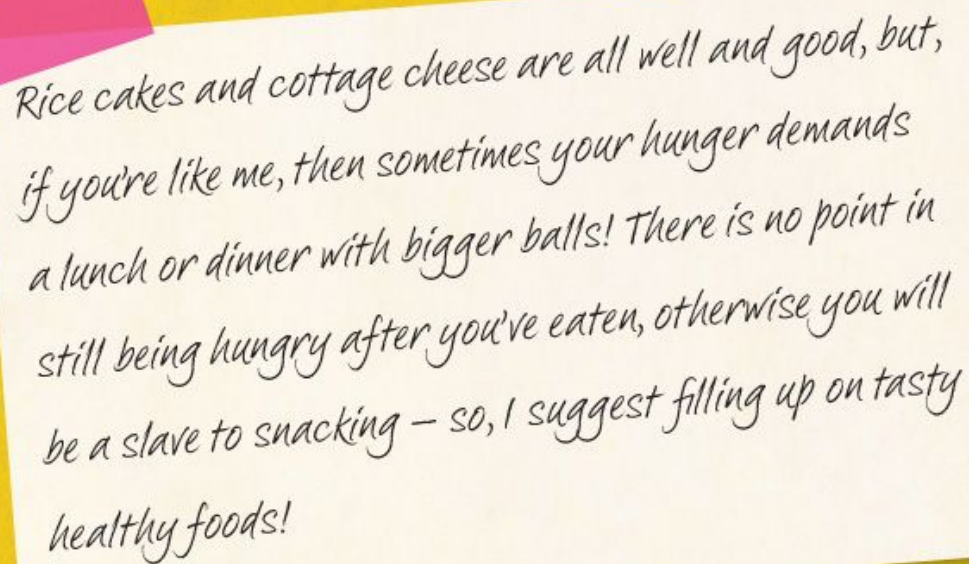 Rice cakes and cottage cheese are all well and good, but,
if you're like me, then sometimes your hunger demands
a lunch or dinner with bigger balls! There is no point in
still being hungry after you've eaten, otherwise you will
be a slave to snacking – so, I suggest filling up on tasty
healthy foods!